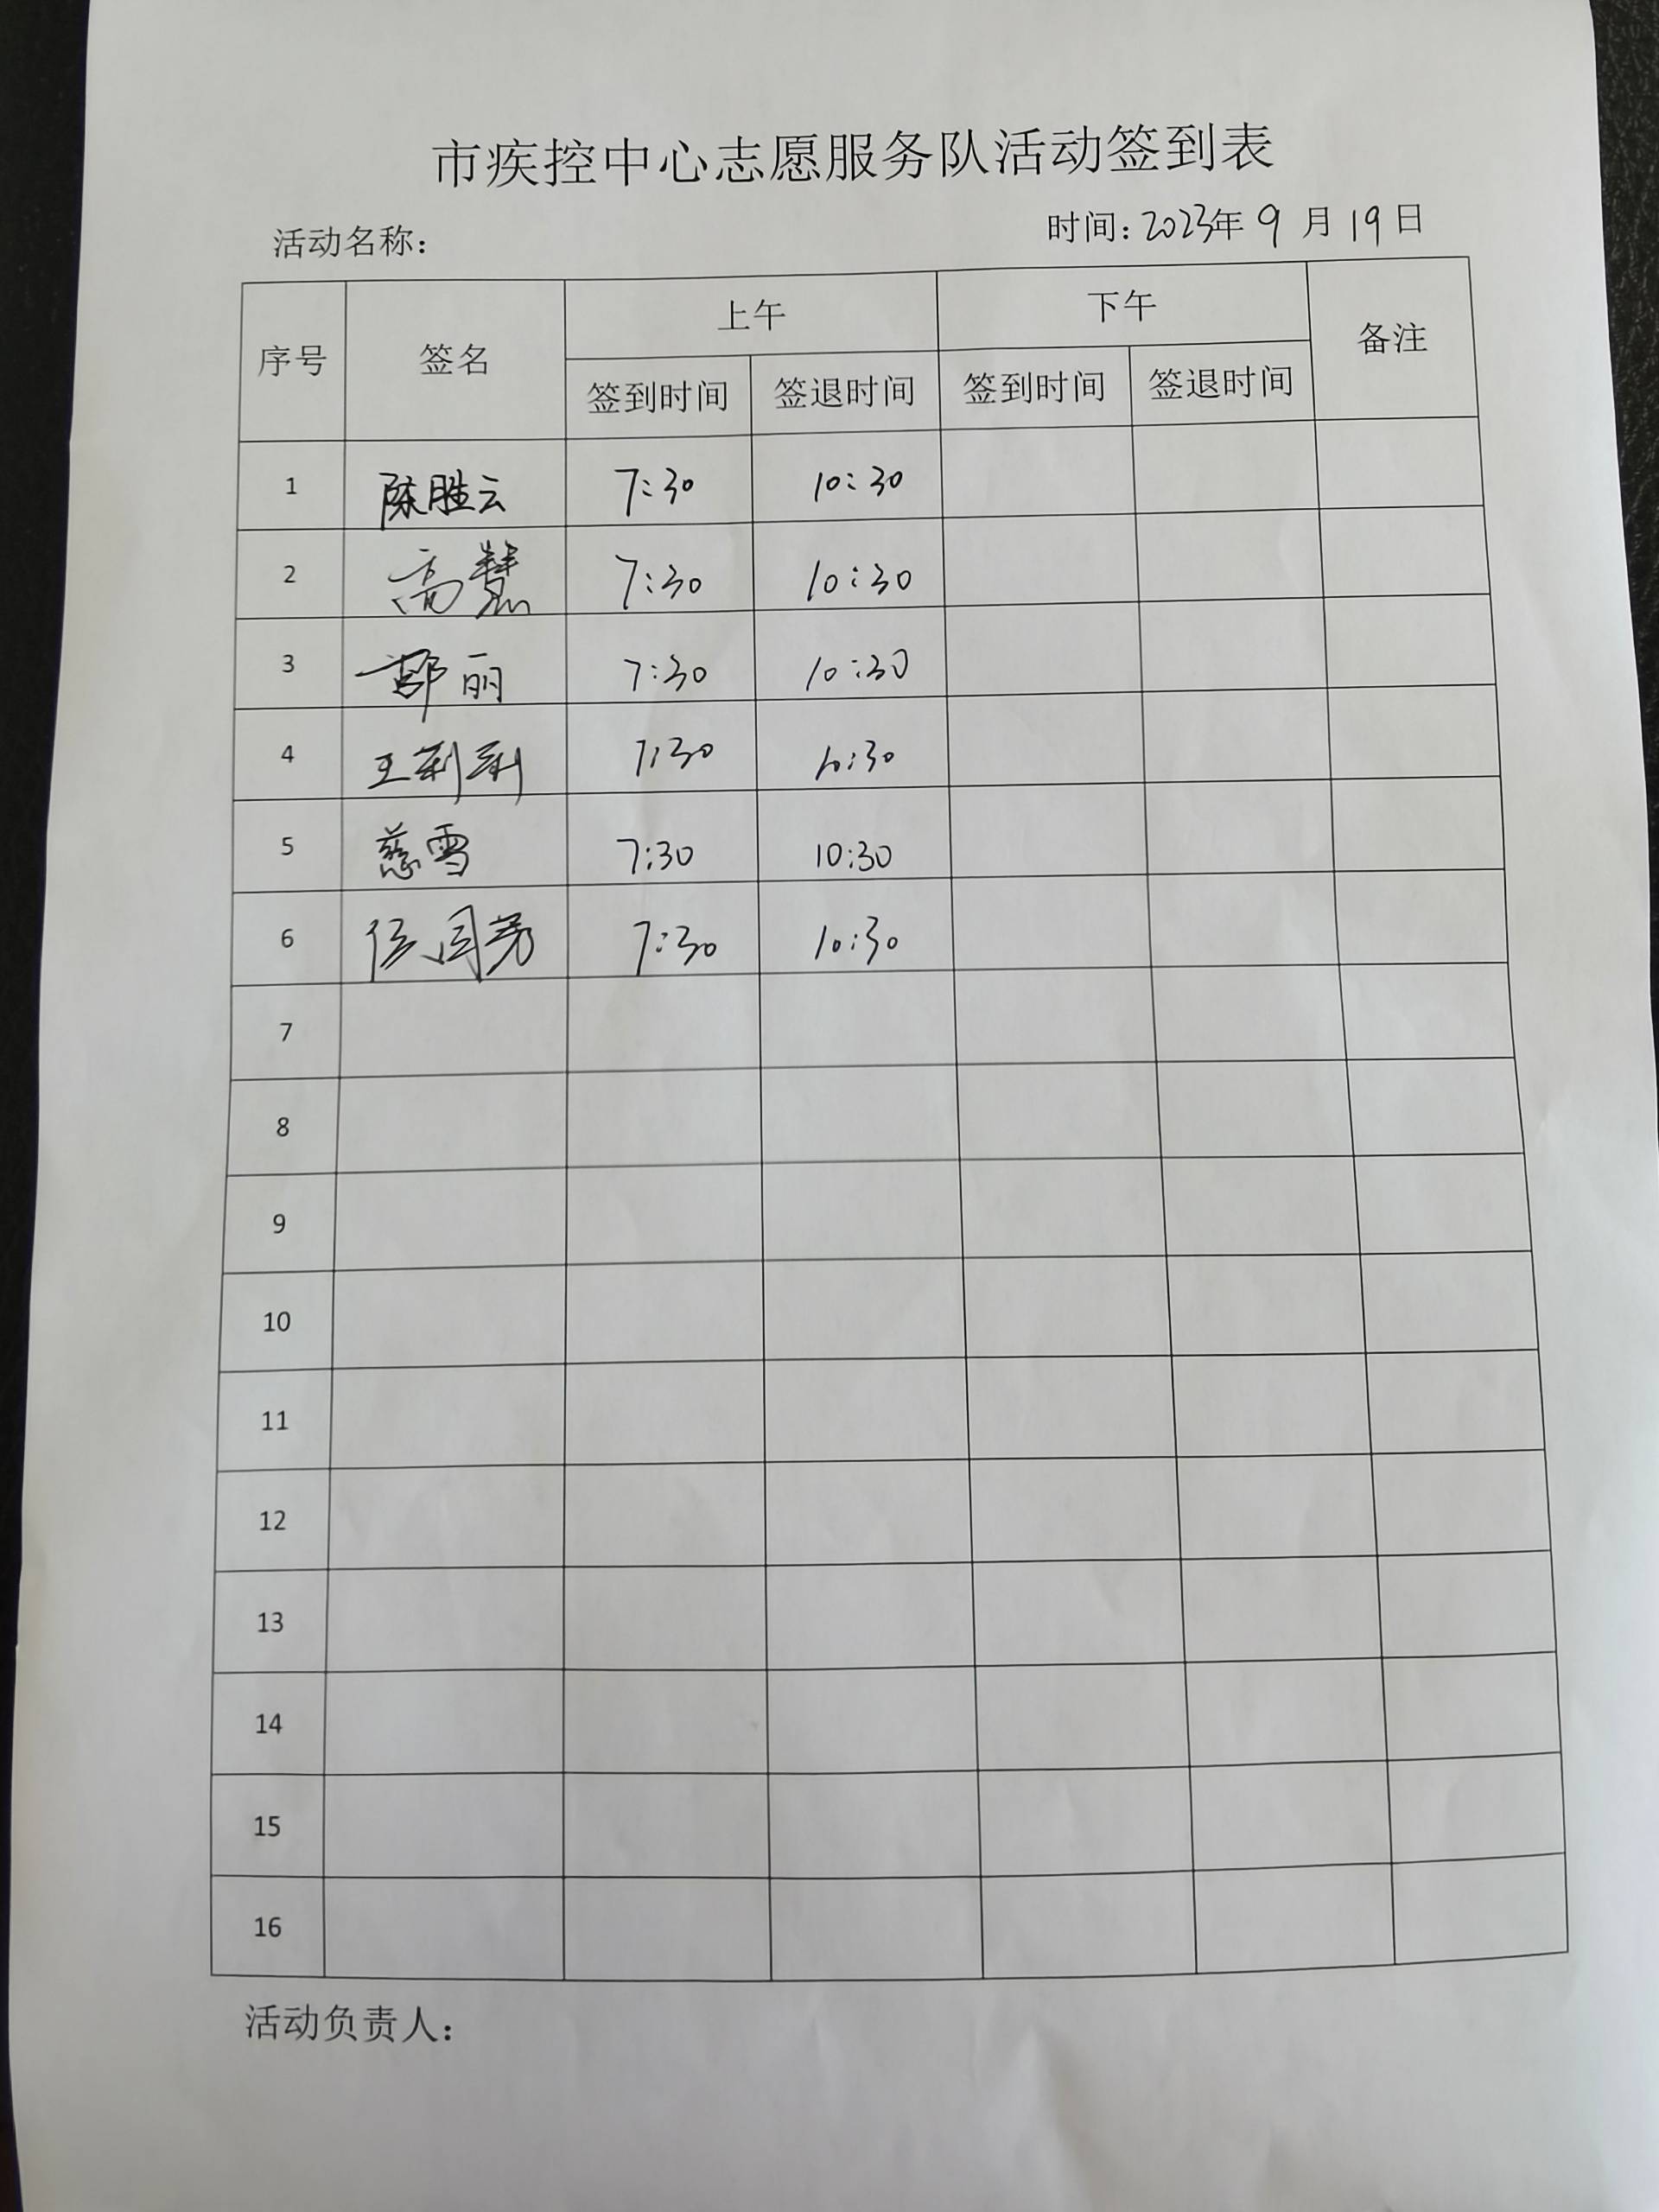 市疾控中心志愿服务队活动签到表
活动名称：
时间：2023年 9 月 19 日
序号 签名 上午 下午 备注
签到时间 签退时间 签到时间 签退时间
1 陈胜云 7:30 10:30
2 高慧 7:30 10:30
3 郭丽 7:30 10:30
4 王莉莉 7:30 10:30
5 慈雪 7:30 10:30
6 7:30 10:30
7
8
9
10
11
12
13
14
15
16
活动负责人：